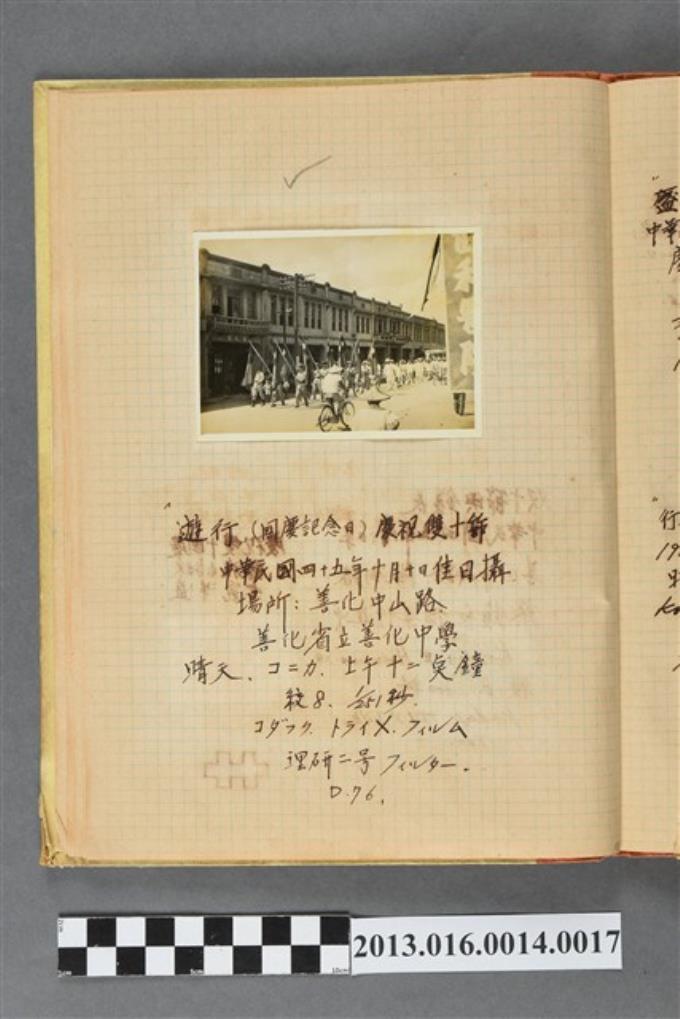 "遊行(囘慶記念日)慶祝雙十節
中華民國四十五年十月十日佳日攝
場所:善化中山路
善化省立善化中學
晴天、コニカ、上午十二点鐘
絞8、1/251秒
コダック、トライX、フィルム
理研二号フィルター。
D.76,
中華
慶
行
19
2cm
5cm
10cm
2013.016.0014.0017